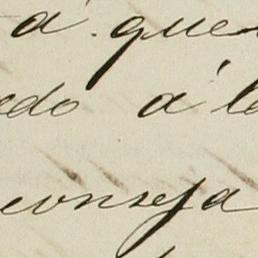 á que
edo á la
conseja